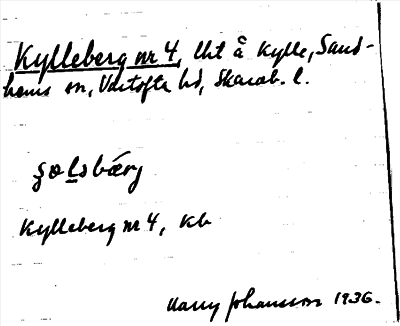 Kylleberg nr 4, lht å Kylle, Sand-
hems sn, Vartofta hd, Skarab. l.
ʂøləbærj
Kylleberg nr 4, Kb
Harry Johansson 1936.